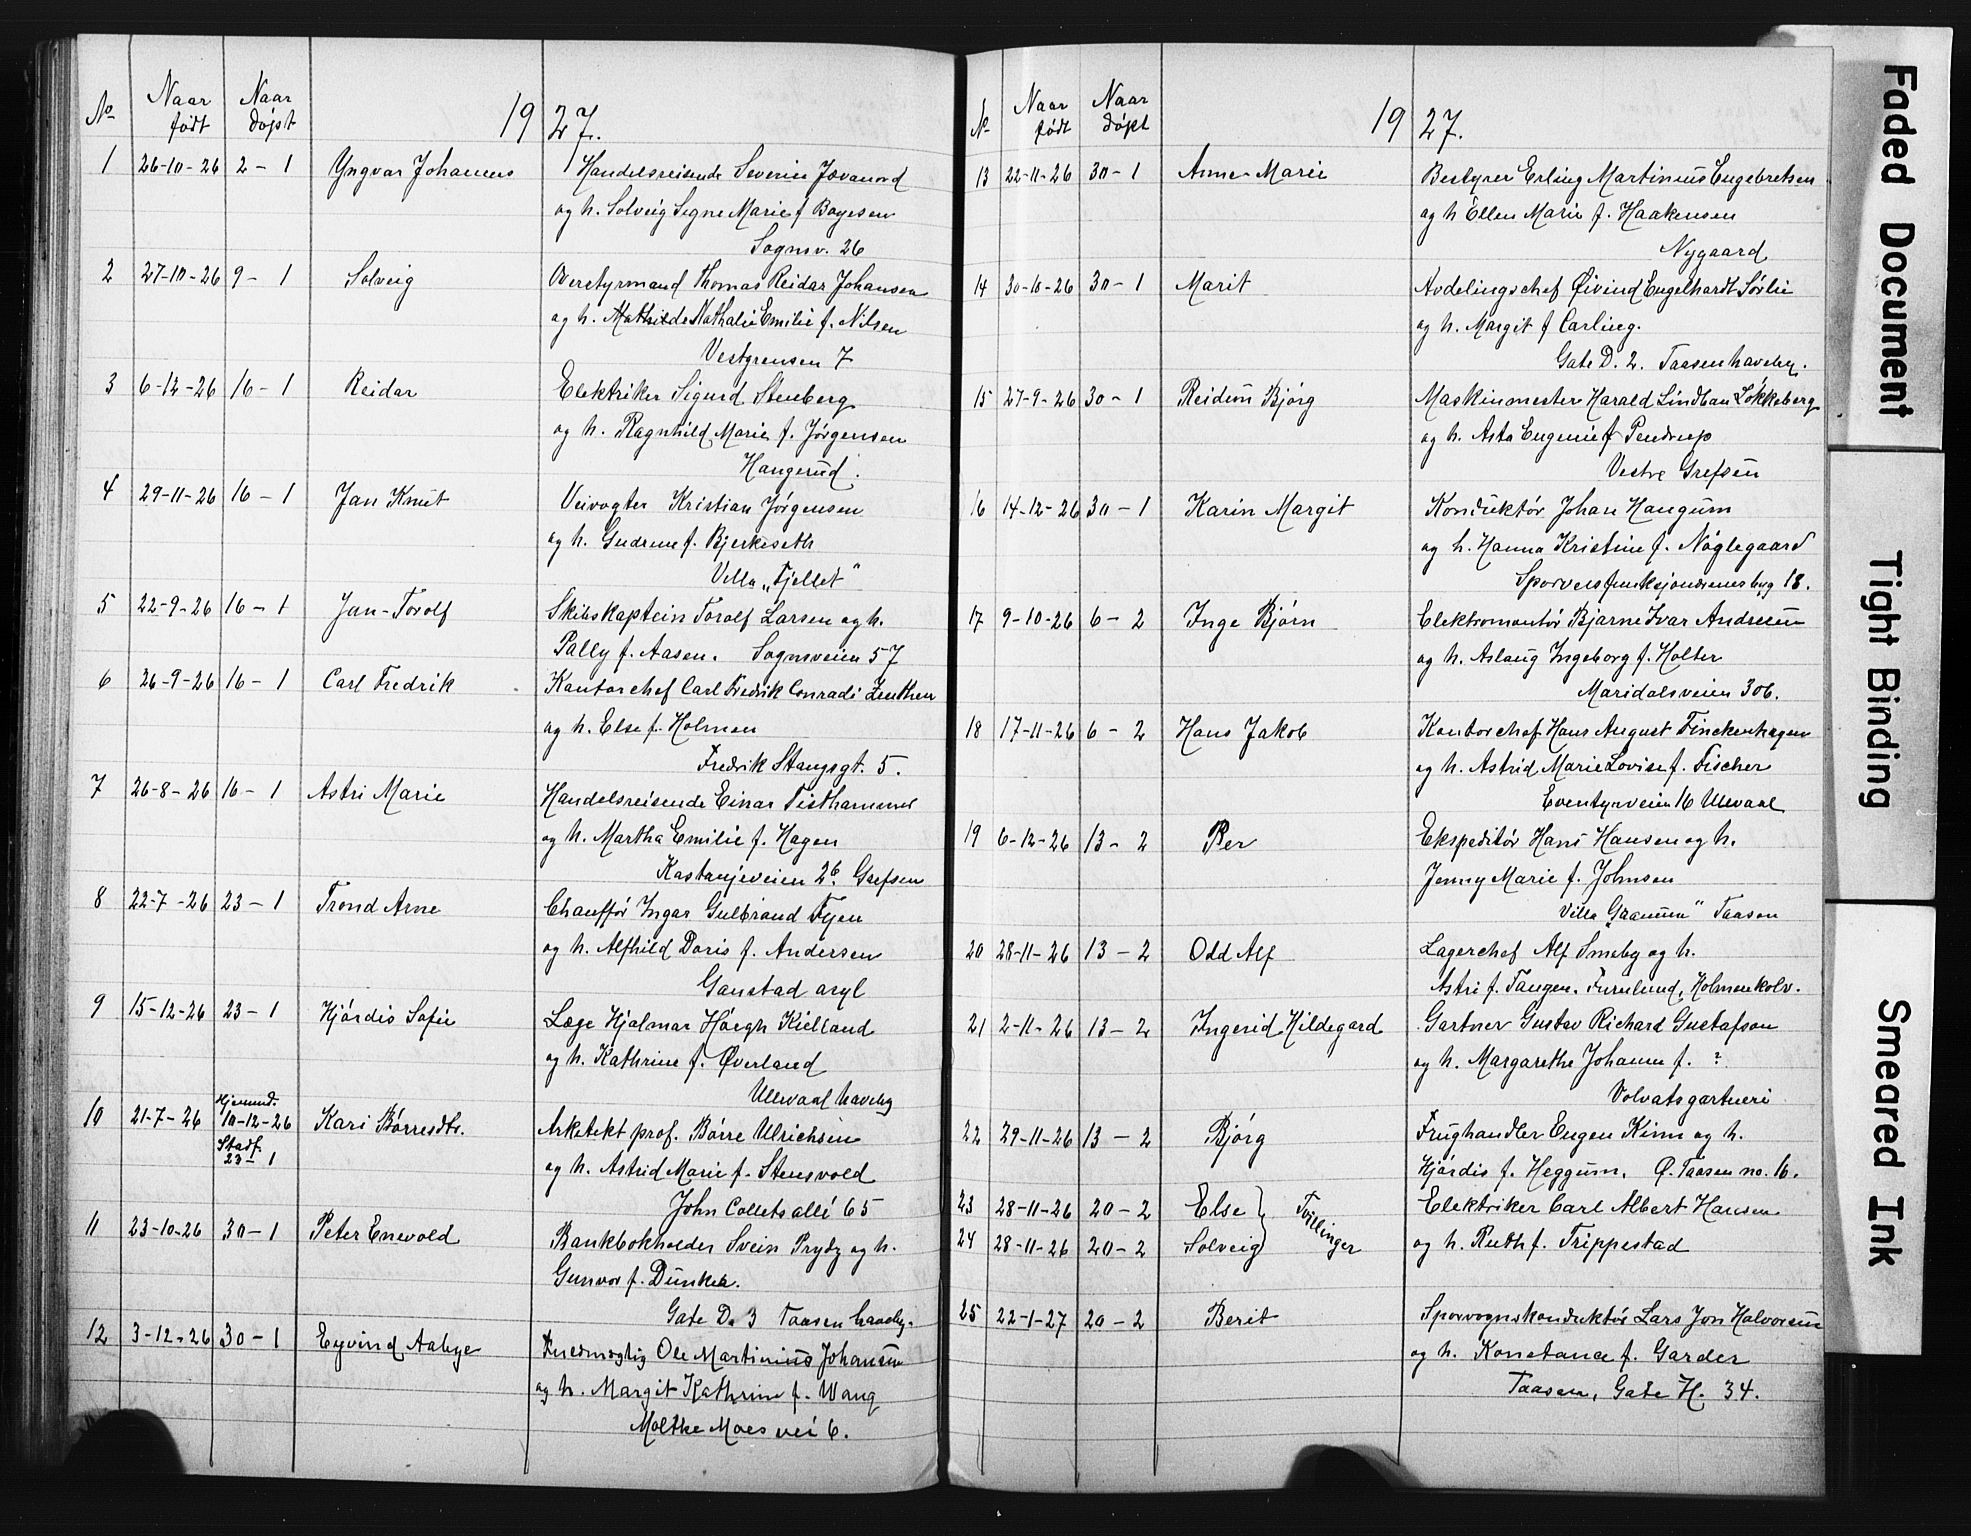 No Naar født Naar døpt 1927.
1 26-10-26 2-1 Yngvar Johannes Handelsreisende Severin Jovanord
og h. Solveig Signe Marie f Boyesen
Sognsv. 26
2 27-10-26 9-1 Solveig Overstyrmand Thomas Reidar Johansen
og h. Mathilde Nathalie Emilie f. Nilsen
Vestgrensen 7
3 6-12-26 16-1 Reidar Elektriker Sigurd Stenberg
og h. Ragnhild Marie f. Jørgensen
Haugerud.
4 29-11-26 16-1 Jan Knut Veivogter Kristian Jørgensen
og h. Gudrun f. Bjerkeseth
Villa „Fjellet"
5 22-9-26 16-1 Jan-Torolf Skibskaptein Torolf Larsen og h.
Pally f. Aasen. Sognsveien 57
6 26-9-26 16-1 Carl Fredrik Kontorchef Carl Fredrik Conradi Zeuthen
og h. Else f. Holmen
Fredrik Stangsgt. 5.
7 26-8-26 16-1 Astri Marie Handelsreisende Einar Tisthammer
og h. Martha Emilie f. Hagen
Kastanjeveien 2b. Grefsen
8 22-7-26 23-1 Trond Arne Chauffør Ingar Gulbrand Fyen
og h. Alfhild Doris f. Andersen
Gaustad asyl
9 15-12-26 23-1 Hjørdis Sofie Læge Hjalmar Høegh Kielland
og h. Kathrine f. Øverland
Ullevaal haveby
10 21-7-26 Hjemmed. 10-12-26 Kari Børresdtr. Arkitekt prof. Børre Ulrichsen
Stadf. 23-1 og h. Astrid Marie f. Stensvold
John Colletsallé 65
11 23-10-26 30-1 Peter Enevold Bankbokholder Svein Prydz og h.
Gunvor f. Dunker.
Gate D. 3 Taasen haveby.
12 3-12-26 30-1 Eyvind Aabye Fuldmægtig Ole Martinius Johansen
og h. Margit Kathrine f. Wang
Moltke Moes vei 6.
No Naar født Naar døpt 1927.
13 22-11-26 30-1 Anne-Marie Bestyrer Erling Martinius Engebretsen
og h Ellen Marie f. Haakensen
Nygaard
14 30-10-26 30-1 Marit Avdelingschef Øivind Engelhardt Sørlie
og h. Margit f Carling.
Gate D. 2. Taasen haveby.
15 27-9-26 30-1 Reidun Bjørg Maskinmester Harald Lindtan Løkkeberg
og h. Asta Eugenie f Pendrup
Vestre Grefsen
16 14-12-26 30-1 Karin Margit Konduktør Johan Haugum
og h. Hanna Kristine f. Nøglegaard
Sporveisfunksjonærenes byg 18.
17 9-10-26 6-2 Inge Bjørn Elektromontør Bjarne Ivar Andresen
og h. Aslaug Ingeborg f. Holter
Maridalsveien 306.
18 17-11-26 6-2 Hans Jakob Kontorchef Hans August Finckenhagen
og h. Astrid Marie Lovise f. Fischer
Eventyrveien 16 Ullevaal
19 6-12-26 13-2 Per Ekspeditør Hans Hansen og h.
Jenny Marie f. Johnsen
Villa „Granum" Taasen
20 28-11-26 13-2 Odd Alf Lagerchef Alf Smeby og h.
Astri f. Tangen. Furulund, Holmenkolv.
21 2-11-26 13-2 Ingerid Hildegard Gartner Gustav Richard Gustafson
og h. Margarethe Johanne f. ?
Volvatsgartneri
22 29-11-26 13-2 Bjørg Frugthandler Eugen Kinn og h.
Hjørdis f. Heggum. Ø. Taasen no. 16.
23 28-11-26 20-2 Else Tvillinger Elektriker Carl Albert Hansen
24 28-11-26 20-2 Solveig og h. Ruth f. Trippestad
25 22-1-27 20-2 Berit Sporvognskonduktør Lars Jon Halvorsen
og h. Konstance f. Garder
Taasen, Gate H. 34.
Faded Document
Tight Binding
Smeared Ink